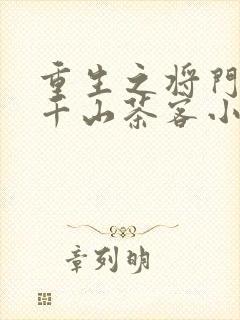 重生之将门
千山茶客小
章列明